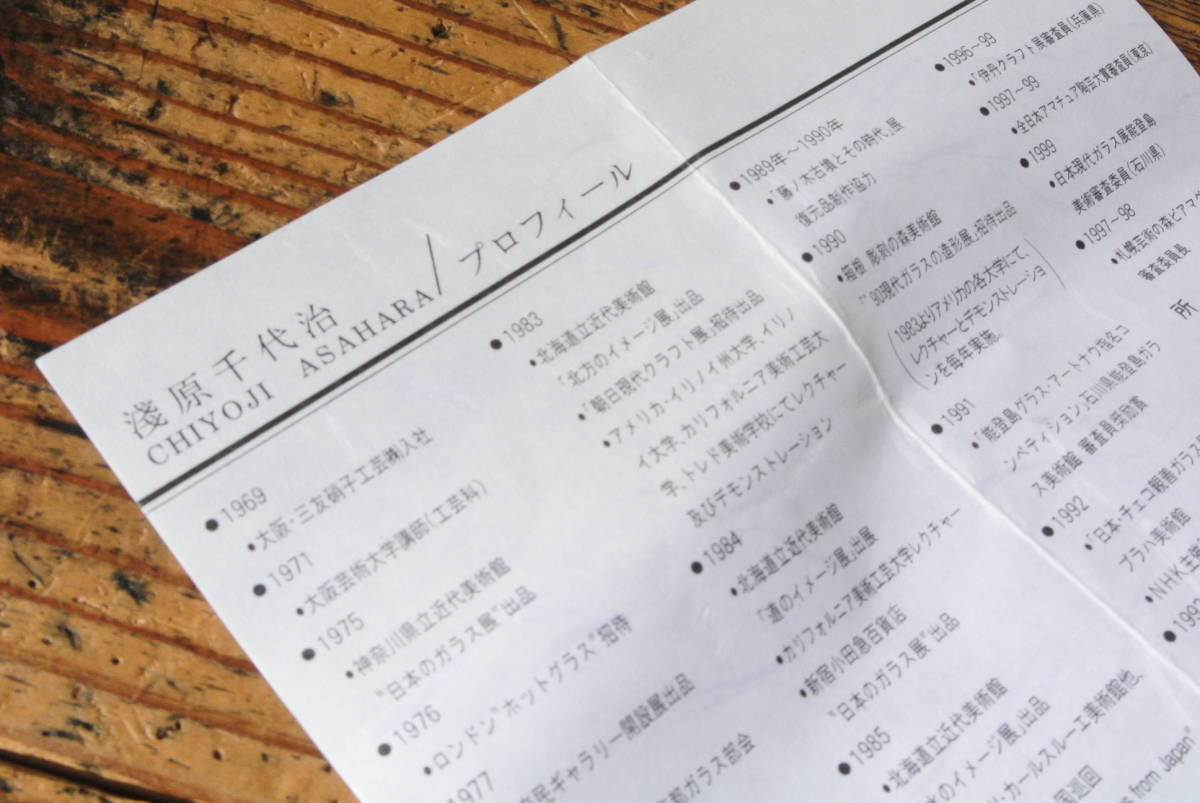 淺原千代治/プロフィール
CHIYOJI ASAHARA
●1969
•大阪・三友硝子工芸㈱入社
●1971
•大阪芸術大学講師(工芸科)
●1975
•神奈川県立近代美術館
"日本のガラス展"出品
●1976
•ロンドン"ホットグラス"招待
1977
民ギャラリー開設展出品
都ガラス部会
●1983
•北海道立近代美術館
「北方のイメージ展」出品
•「朝日現代クラフト展」招待出品
•アメリカ・イリノイ州大学、イリノ
イ大学、カリフォルニア美術工芸大
学、トレド美術学校にてレクチャー
及びデモンストレーション
●1984
•北海道立近代美術館
「道のイメージ展」出展
•カリフォルニア美術工芸大学レクチャー
•新宿小田急百貨店
"日本のガラス展"出品
●1985
•北海道立近代美術館
水のイメージ展」出品
カールスルーエ美術館他、
国巡回
from Japan"
●1989年〜1990年
•「藤ノ木古墳とその時代」展
復元品制作協力
●1990
•箱根 彫刻の森美術館
「'90現代ガラスの造形展」招待出品
(1983よりアメリカの各大学にて、
レクチャーとデモンストレーショ
ンを毎年実施。)
●1991
•「能登島グラス・アートナウ指名コ
ンペティション」石川県能登島ガラ
ス美術館 審査員奨励賞
●1992
•「日本・チェコ親善ガラス
プラハ美術館
•NHK主
●1996〜99
•「伊丹クラフト展審査員(兵庫県)
●1997〜99
•全日本アマチュア陶芸大賞審査員(東京)
●1999
•日本現代ガラス展能登島
美術審査委員(石川県)
●1997〜98
•札幌芸術の森ビアマグ
審査委員長
所